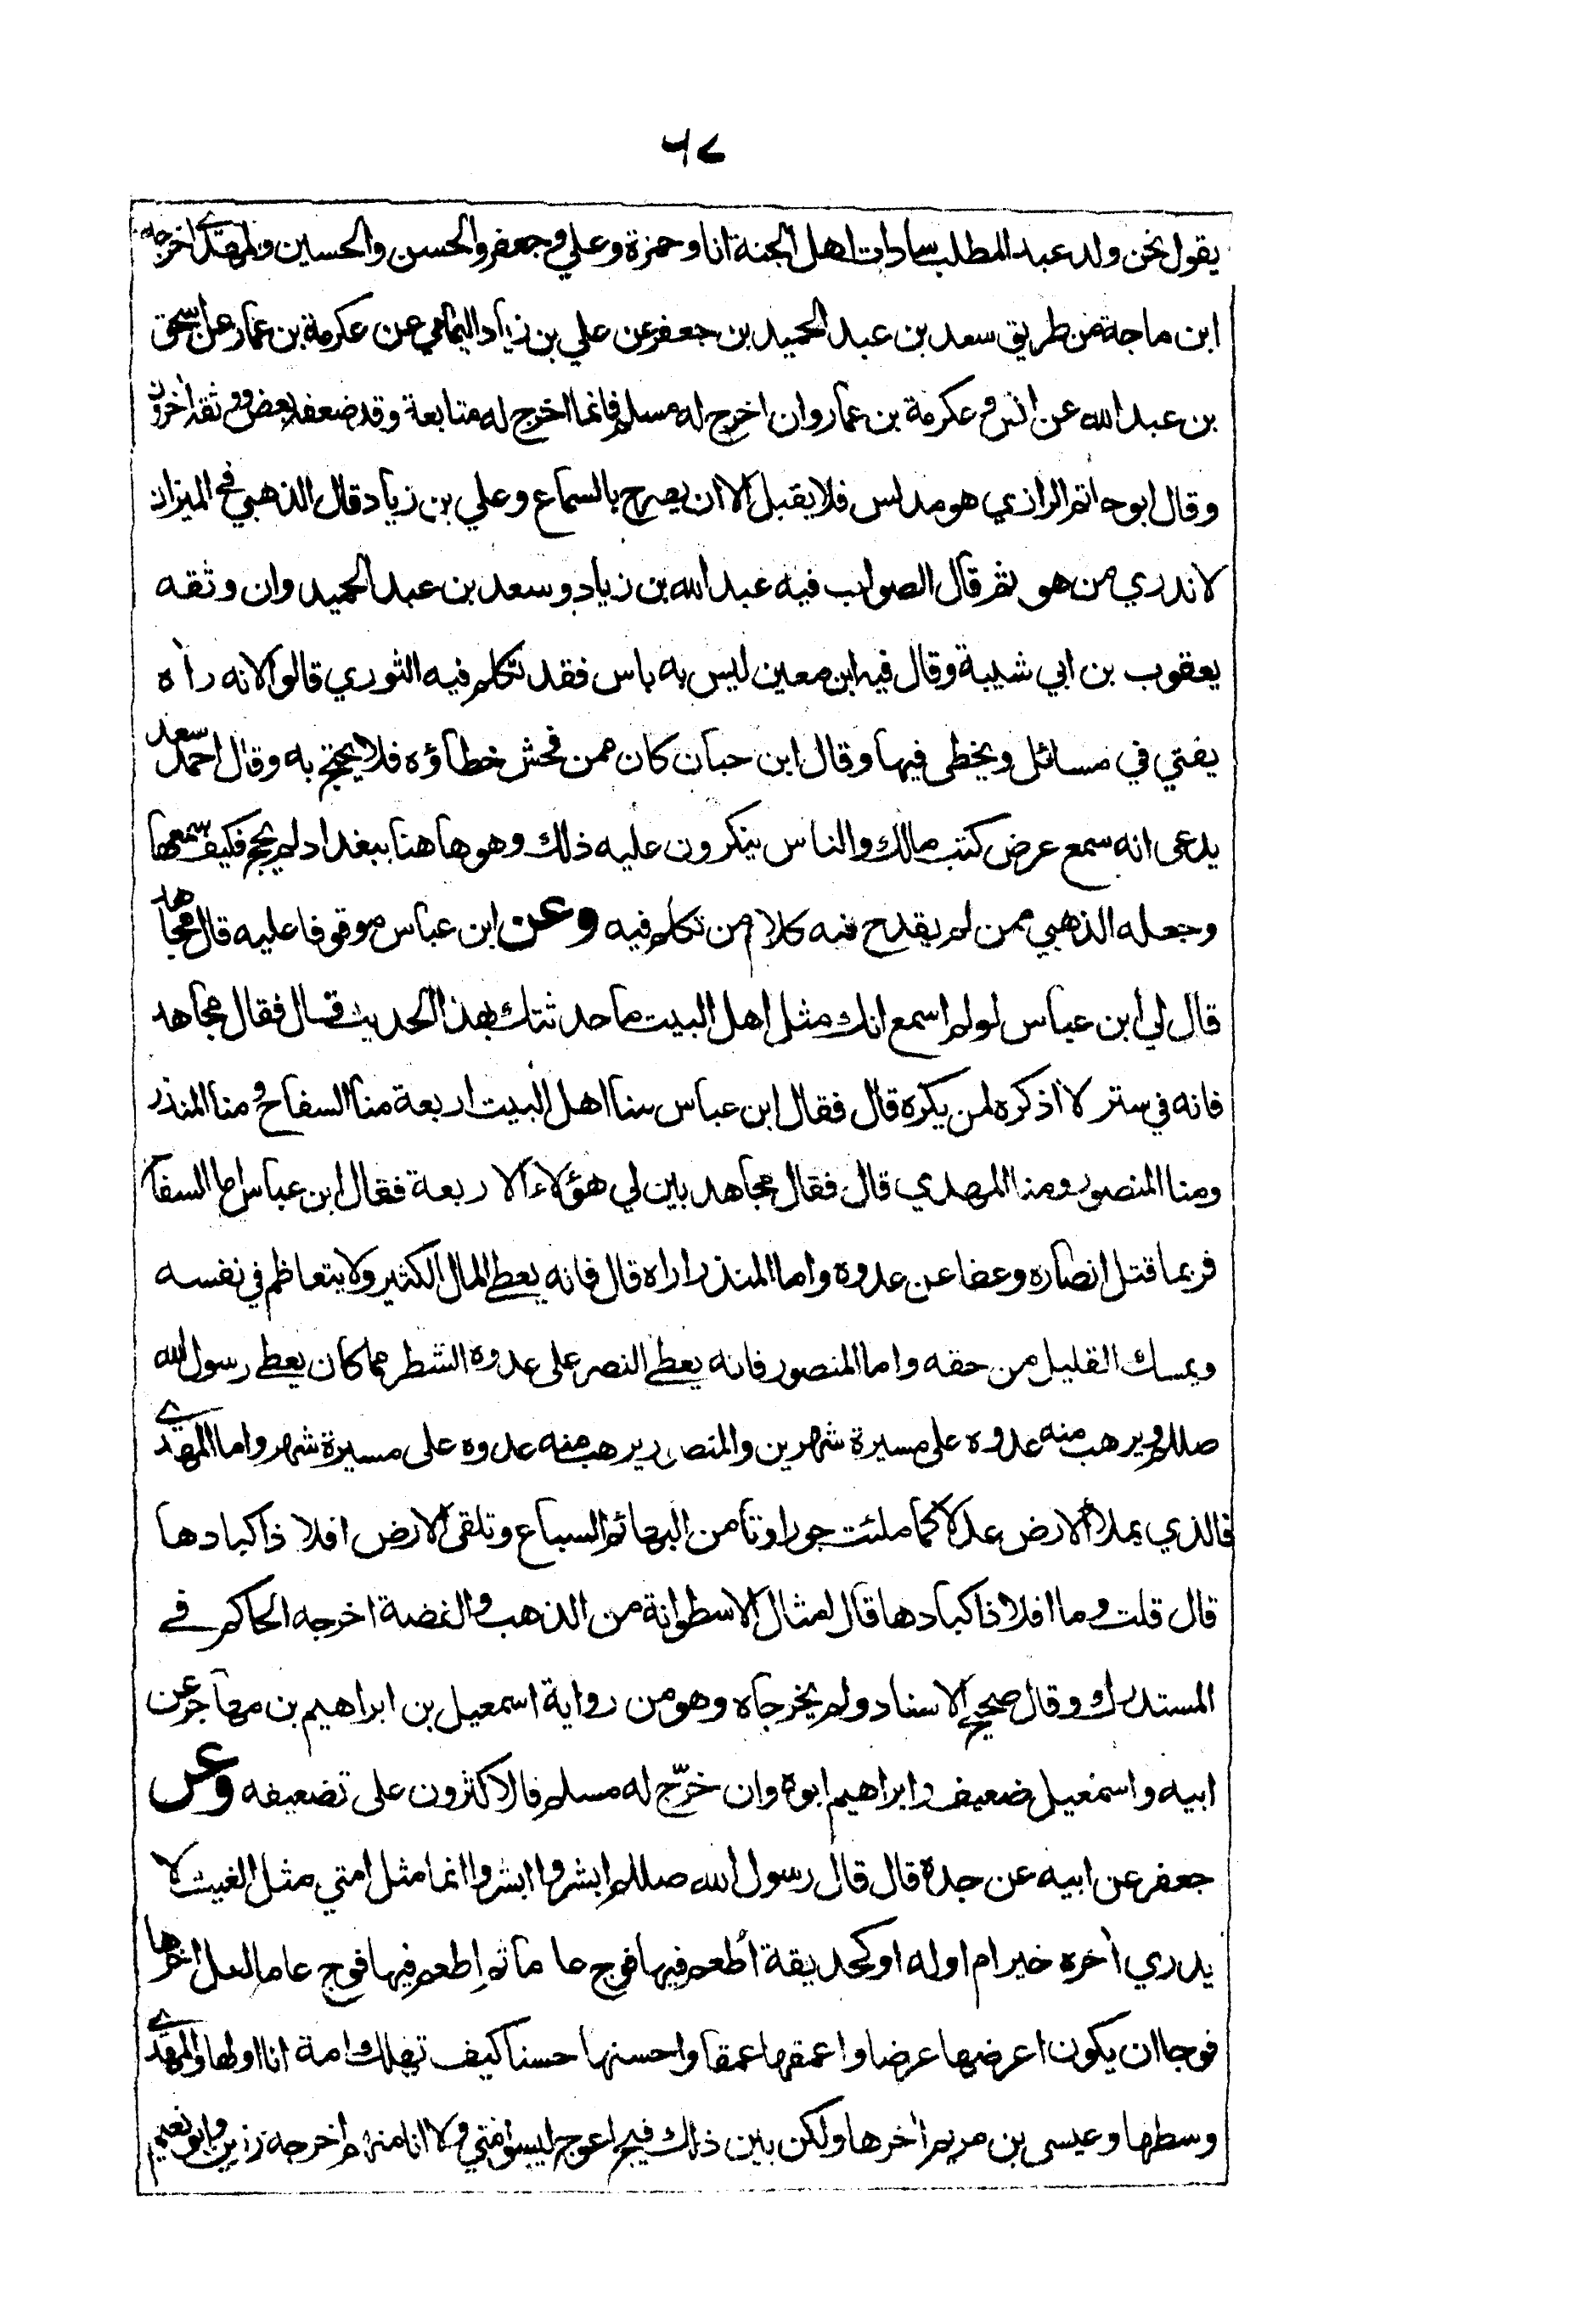 ٦٧
يقول نحن ولد عبد المطلب سادات اهل الجنة انا وحمزة وعلي وجعفر والحسن والحسين والمهدي اخرجه
ابن ماجة من طريق سعد بن عبد الحميد بن جعفر عن علي بن زياد اليمامي عن عكرمة بن عمار عن اسحق
بن عبد الله عن انس وعكرمة بن عمار وان اخرج له مسلم فانما اخرج له متابعة وقد ضعفه بعض ووثقه اخرون
وقال ابو حاتم الرازي هو مدلس فلا يقبل الا ان يصرح بالسماع وعلي بن زياد قال الذهبي في الميزان
لا ندري من هو ثم قال الصواب فيه عبد الله بن زياد وسعد بن عبد الحميد وان وثقه
يعقوب بن ابي شيبة وقال فيه ابن معين ليس به باس فقد تكلم فيه الثوري قالوا لانه رأه
يفتي في مسائل ويخطى فيها وقال ابن حبان كان ممن فحش خطاؤه فلا يحتج به وقال احمد سعد
يدعى انه سمع عرض كتب مالك والناس ينكرون عليه ذلك وهو هاهنا ببغداد لم يحج فكيف سمعها
وجعله الذهبي ممن لم يقدح فيه كلام من تكلم فيه وعن ابن عباس موقوفا عليه قال مجاهد
قال لي ابن عباس لو لم اسمع انك مثل اهل البيت ما حدثتك بهذا الحديث قال فقال مجاهد
فانه في ستر لا اذكره لمن يكره قال فقال ابن عباس منا اهل البيت اربعة منا السفاح ومنا المنذر
ومنا المنصور ومنا المهدي قال فقال مجاهد بين لي هؤلاء الاربعة فقال ابن عباس اما السفاح
فربما قتل انصاره وعفا عن عدوه واما المنذر اراه قال فانه يعطي المال الكثير ولا يتعاظم في نفسه
ويمسك القليل من حقه واما المنصور فانه يعطي النصر على عدوه الشطر مما كان يعطي رسول الله
صللم ويرهب منه عدوه على مسيرة شهرين والمنصور يرهب منه عدوه على مسيرة شهر واما المهدي
فالذي يملأ الارض عدلا كما ملئت جورا وتامن البهائم السباع وتلقى الارض افلاذ اكبادها
قال قلت وما افلاذ اكبادها قال امثال الاسطوانة من الذهب والفضة اخرجه الحاكم في
المستدرك وقال صحيح الاسناد ولم يخرجاه وهو من رواية اسمعيل بن ابراهيم بن مهاجر عن
ابيه واسمعيل ضعيف وابراهيم ابوه وان خرّج له مسلم فالاكثرون على تضعيفه وعن
جعفر عن ابيه عن جده قال قال رسول الله صللم ابشروا ابشروا انما مثل امتي مثل الغيث لا
يدري أخره خير ام اوله او كحديقة أطعم فيها فوج عاما ثم اطعم فيها فوج عاما لعل اخرها
فوجا ان يكون اعرضها عرضا واعمقها عمقا واحسنها حسنا كيف تهلك امة انا اولها والمهدي
وسطها وعيسى بن مريم أخرها ولكن بين ذلك فيج اعوج ليسوا مني ولا انا منهم اخرجه رزين وابو نعيم